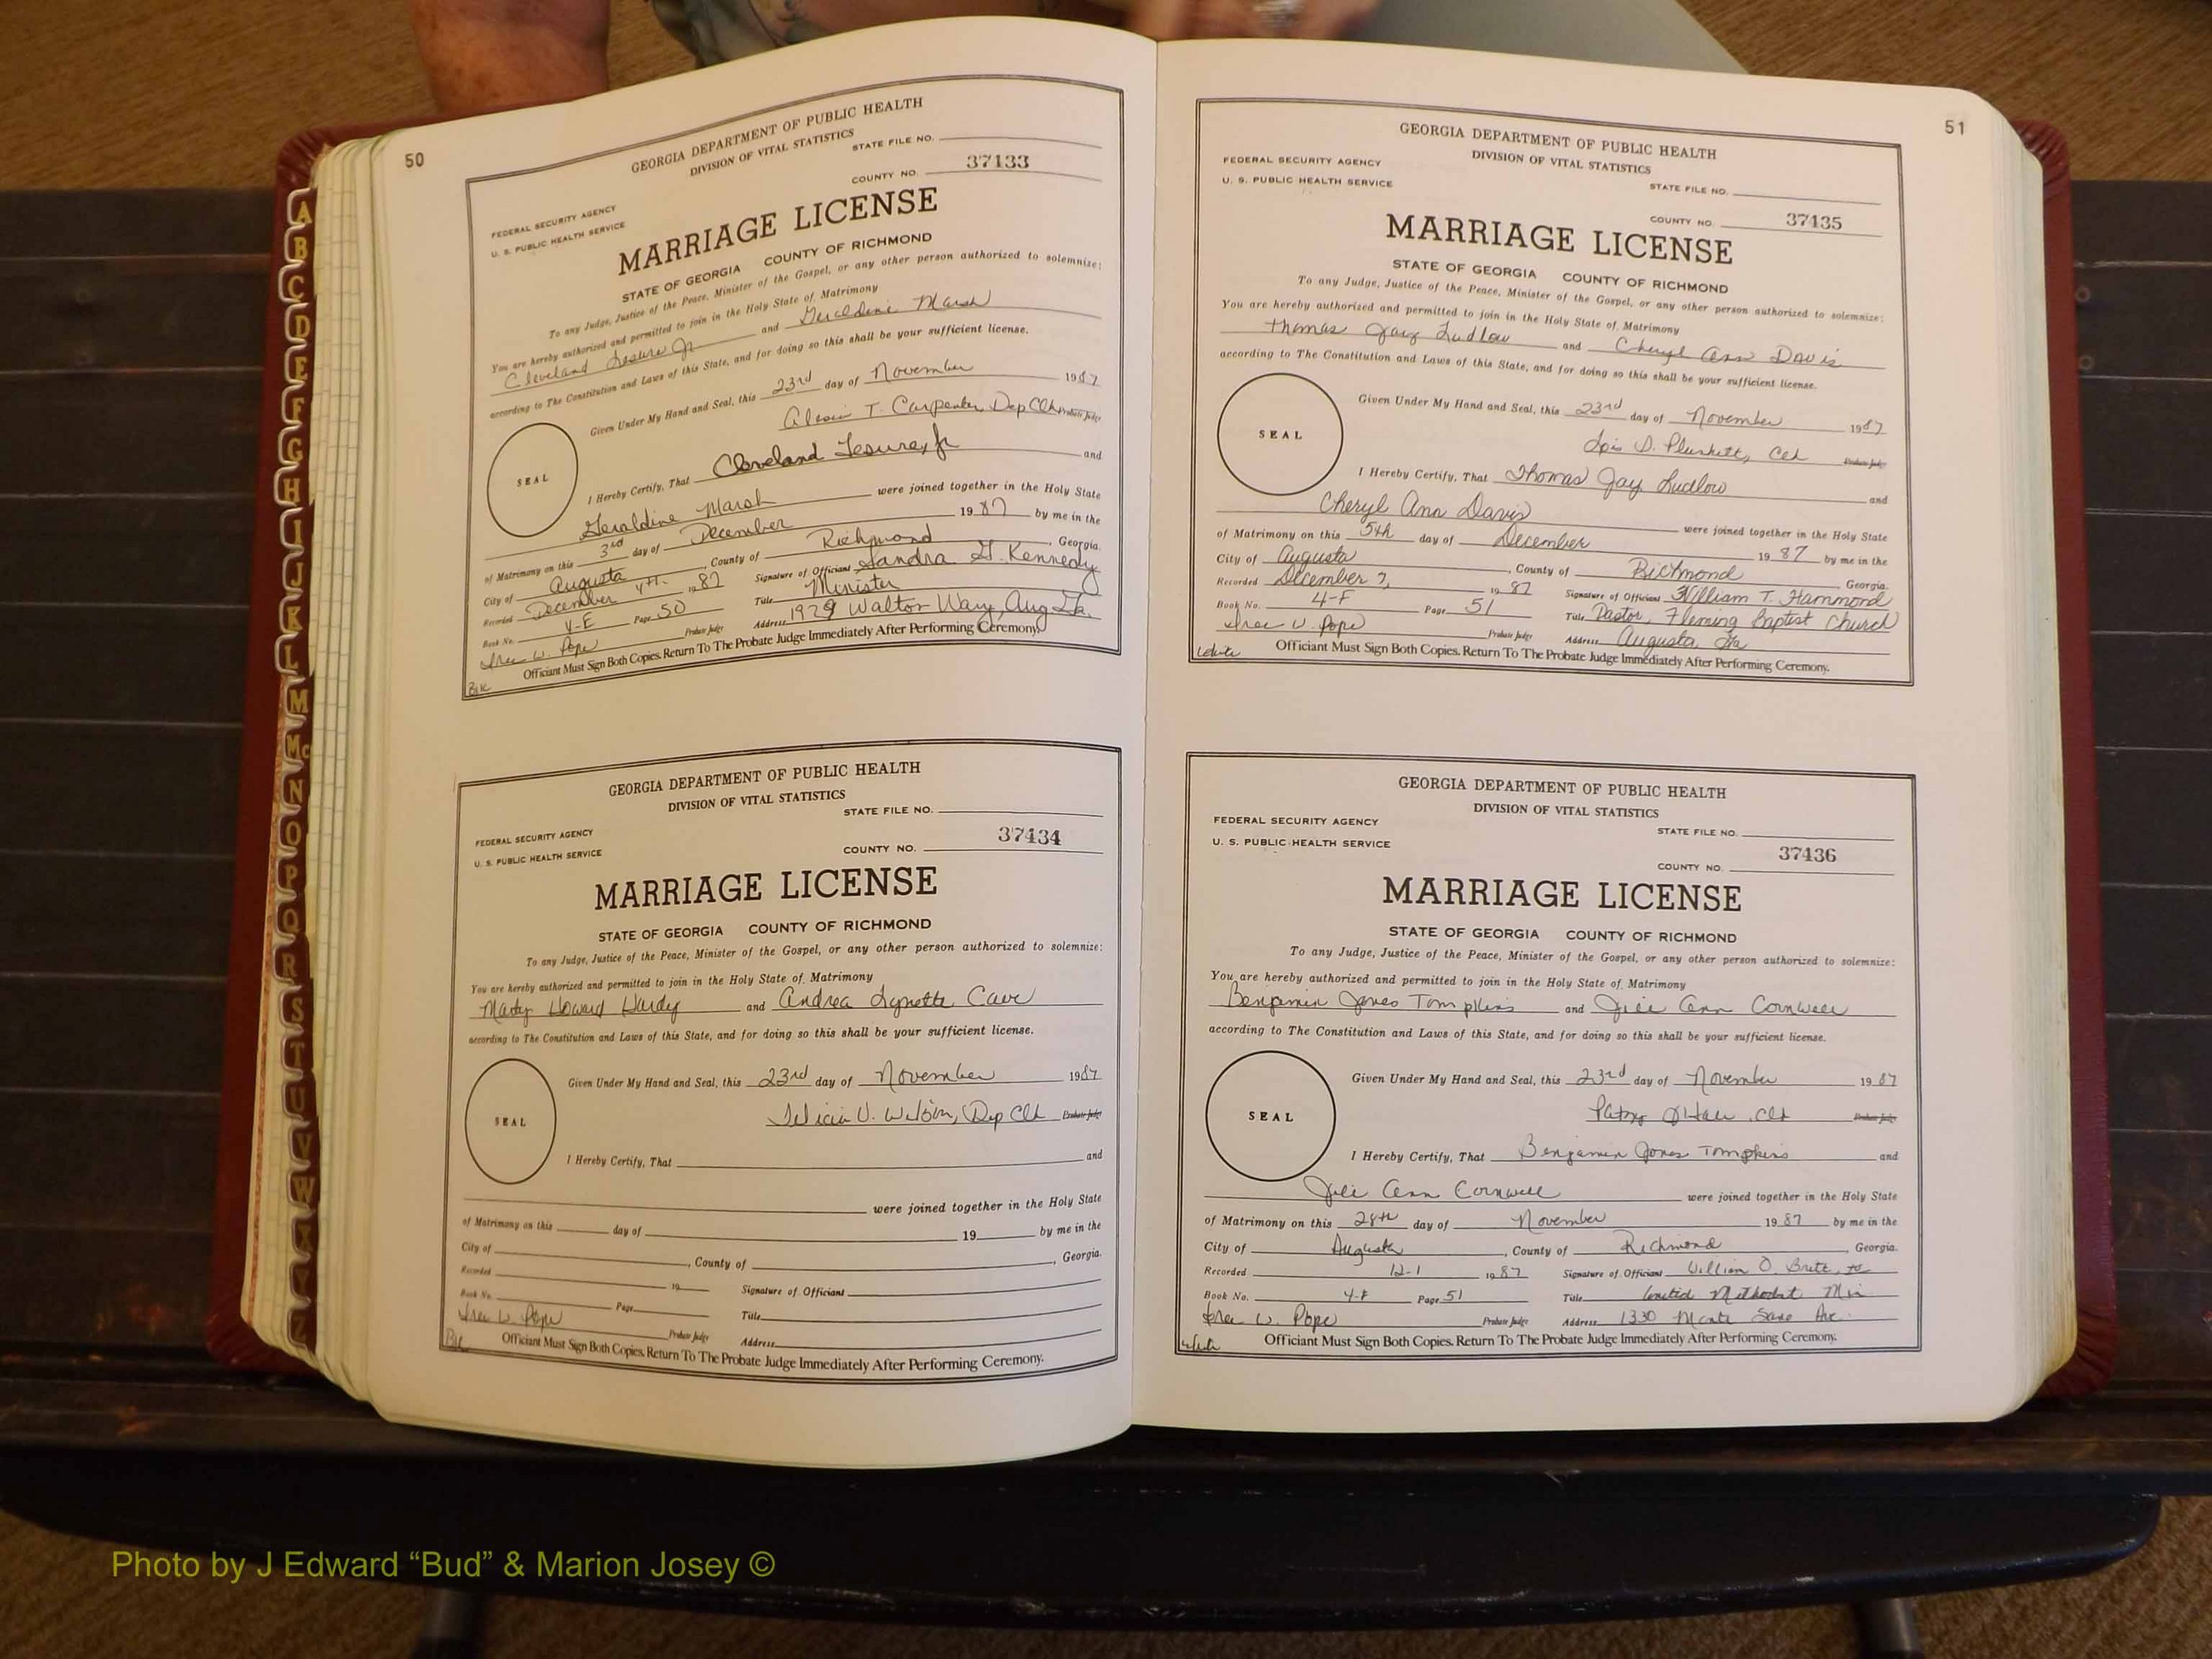 50
GEORGIA DEPARTMENT OF PUBLIC HEALTH
DIVISION OF VITAL STATISTICS
STATE FILE NO.
FEDERAL SECURITY AGENCY
U. S. PUBLIC HEALTH SERVICE
COUNTY NO. 37133
MARRIAGE LICENSE
STATE OF GEORGIA COUNTY OF RICHMOND
To any Judge, Justice of the Peace, Minister of the Gospel, or any other person authorized to solemnize:
You are hereby authorized and permitted to join in the Holy State of Matrimony
Cleveland Lesure Jr and Geraldine Marsh
according to The Constitution and Laws of this State, and for doing so this shall be your sufficient license.
Given Under My Hand and Seal, this 23rd day of November 1987
T. Carpenter, Dep Clk Probate Judge
SEAL
I Hereby Certify, That Cleveland Lesure, Jr and
Geraldine Marsh were joined together in the Holy State
of Matrimony on this 3rd day of December 1987 by me in the
City of Augusta, County of Richmond, Georgia.
Recorded December 4th 1987 Signature of Officiant Sandra G. Kennedy
Book No. 4-E Page 50 Title Minister
W. Pope Probate Judge Address 1929 Walton Way, Aug Ga.
Officiant Must Sign Both Copies. Return To The Probate Judge Immediately After Performing Ceremony.
GEORGIA DEPARTMENT OF PUBLIC HEALTH
DIVISION OF VITAL STATISTICS
STATE FILE NO.
FEDERAL SECURITY AGENCY
U. S. PUBLIC HEALTH SERVICE
COUNTY NO. 37434
MARRIAGE LICENSE
STATE OF GEORGIA COUNTY OF RICHMOND
To any Judge, Justice of the Peace, Minister of the Gospel, or any other person authorized to solemnize:
You are hereby authorized and permitted to join in the Holy State of Matrimony
Marty Howard Hardy and Andrea Lynette Cave
according to The Constitution and Laws of this State, and for doing so this shall be your sufficient license.
Given Under My Hand and Seal, this 23rd day of November 1987
Felicia V. Wilson, Dep Clk Probate Judge
SEAL
I Hereby Certify, That and
were joined together in the Holy State
of Matrimony on this day of 19 by me in the
City of , County of , Georgia.
Recorded 19 Signature of Officiant
Book No. Page Title
W. Pope Probate Judge Address
Officiant Must Sign Both Copies. Return To The Probate Judge Immediately After Performing Ceremony.
51
GEORGIA DEPARTMENT OF PUBLIC HEALTH
DIVISION OF VITAL STATISTICS
FEDERAL SECURITY AGENCY
U. S. PUBLIC HEALTH SERVICE
STATE FILE NO.
COUNTY NO. 37135
MARRIAGE LICENSE
STATE OF GEORGIA COUNTY OF RICHMOND
To any Judge, Justice of the Peace, Minister of the Gospel, or any other person authorized to solemnize:
You are hereby authorized and permitted to join in the Holy State of Matrimony
Thomas Jay Ludlow and Cheryl Ann Davis
according to The Constitution and Laws of this State, and for doing so this shall be your sufficient license.
Given Under My Hand and Seal, this 23rd day of November 1987
Lois D. Plunkett, Clk Probate Judge
SEAL
I Hereby Certify, That Thomas Jay Ludlow and
Cheryl Ann Davis were joined together in the Holy State
of Matrimony on this 5th day of December 1987 by me in the
City of Augusta, County of Richmond Georgia.
Recorded December 7, 1987 Signature of Officiant William T. Hammond
Book No. 4-F Page 51 Title Pastor, Fleming Baptist Church
W. Pope Probate Judge Address Augusta, Ga
White Officiant Must Sign Both Copies. Return To The Probate Judge Immediately After Performing Ceremony.
GEORGIA DEPARTMENT OF PUBLIC HEALTH
DIVISION OF VITAL STATISTICS
FEDERAL SECURITY AGENCY
U. S. PUBLIC HEALTH SERVICE
STATE FILE NO.
COUNTY NO. 37436
MARRIAGE LICENSE
STATE OF GEORGIA COUNTY OF RICHMOND
To any Judge, Justice of the Peace, Minister of the Gospel, or any other person authorized to solemnize:
You are hereby authorized and permitted to join in the Holy State of Matrimony
Benjamin Jones Tompkins and Julie Ann Cornwell
according to The Constitution and Laws of this State, and for doing so this shall be your sufficient license.
Given Under My Hand and Seal, this 23rd day of November 1987
Clk Probate Judge
SEAL
I Hereby Certify, That Benjamin Jones Tompkins and
Julie Ann Cornwell were joined together in the Holy State
of Matrimony on this 28th day of November 1987 by me in the
City of Augusta, County of Richmond, Georgia.
Recorded 12-1 1987 Signature of Officiant William O. Britt, Jr
Book No. 4-F Page 51 Title United Methodist Min
W. Pope Probate Judge Address 1330 Monte Sano Ave.
White Officiant Must Sign Both Copies. Return To The Probate Judge Immediately After Performing Ceremony.
A
B
C
D
E
F
G
H
I
J
K
L
M
Mc
N
O
P
Q
R
S
T
U
V
W
X
Y
Z
Photo by J Edward “Bud” & Marion Josey ©